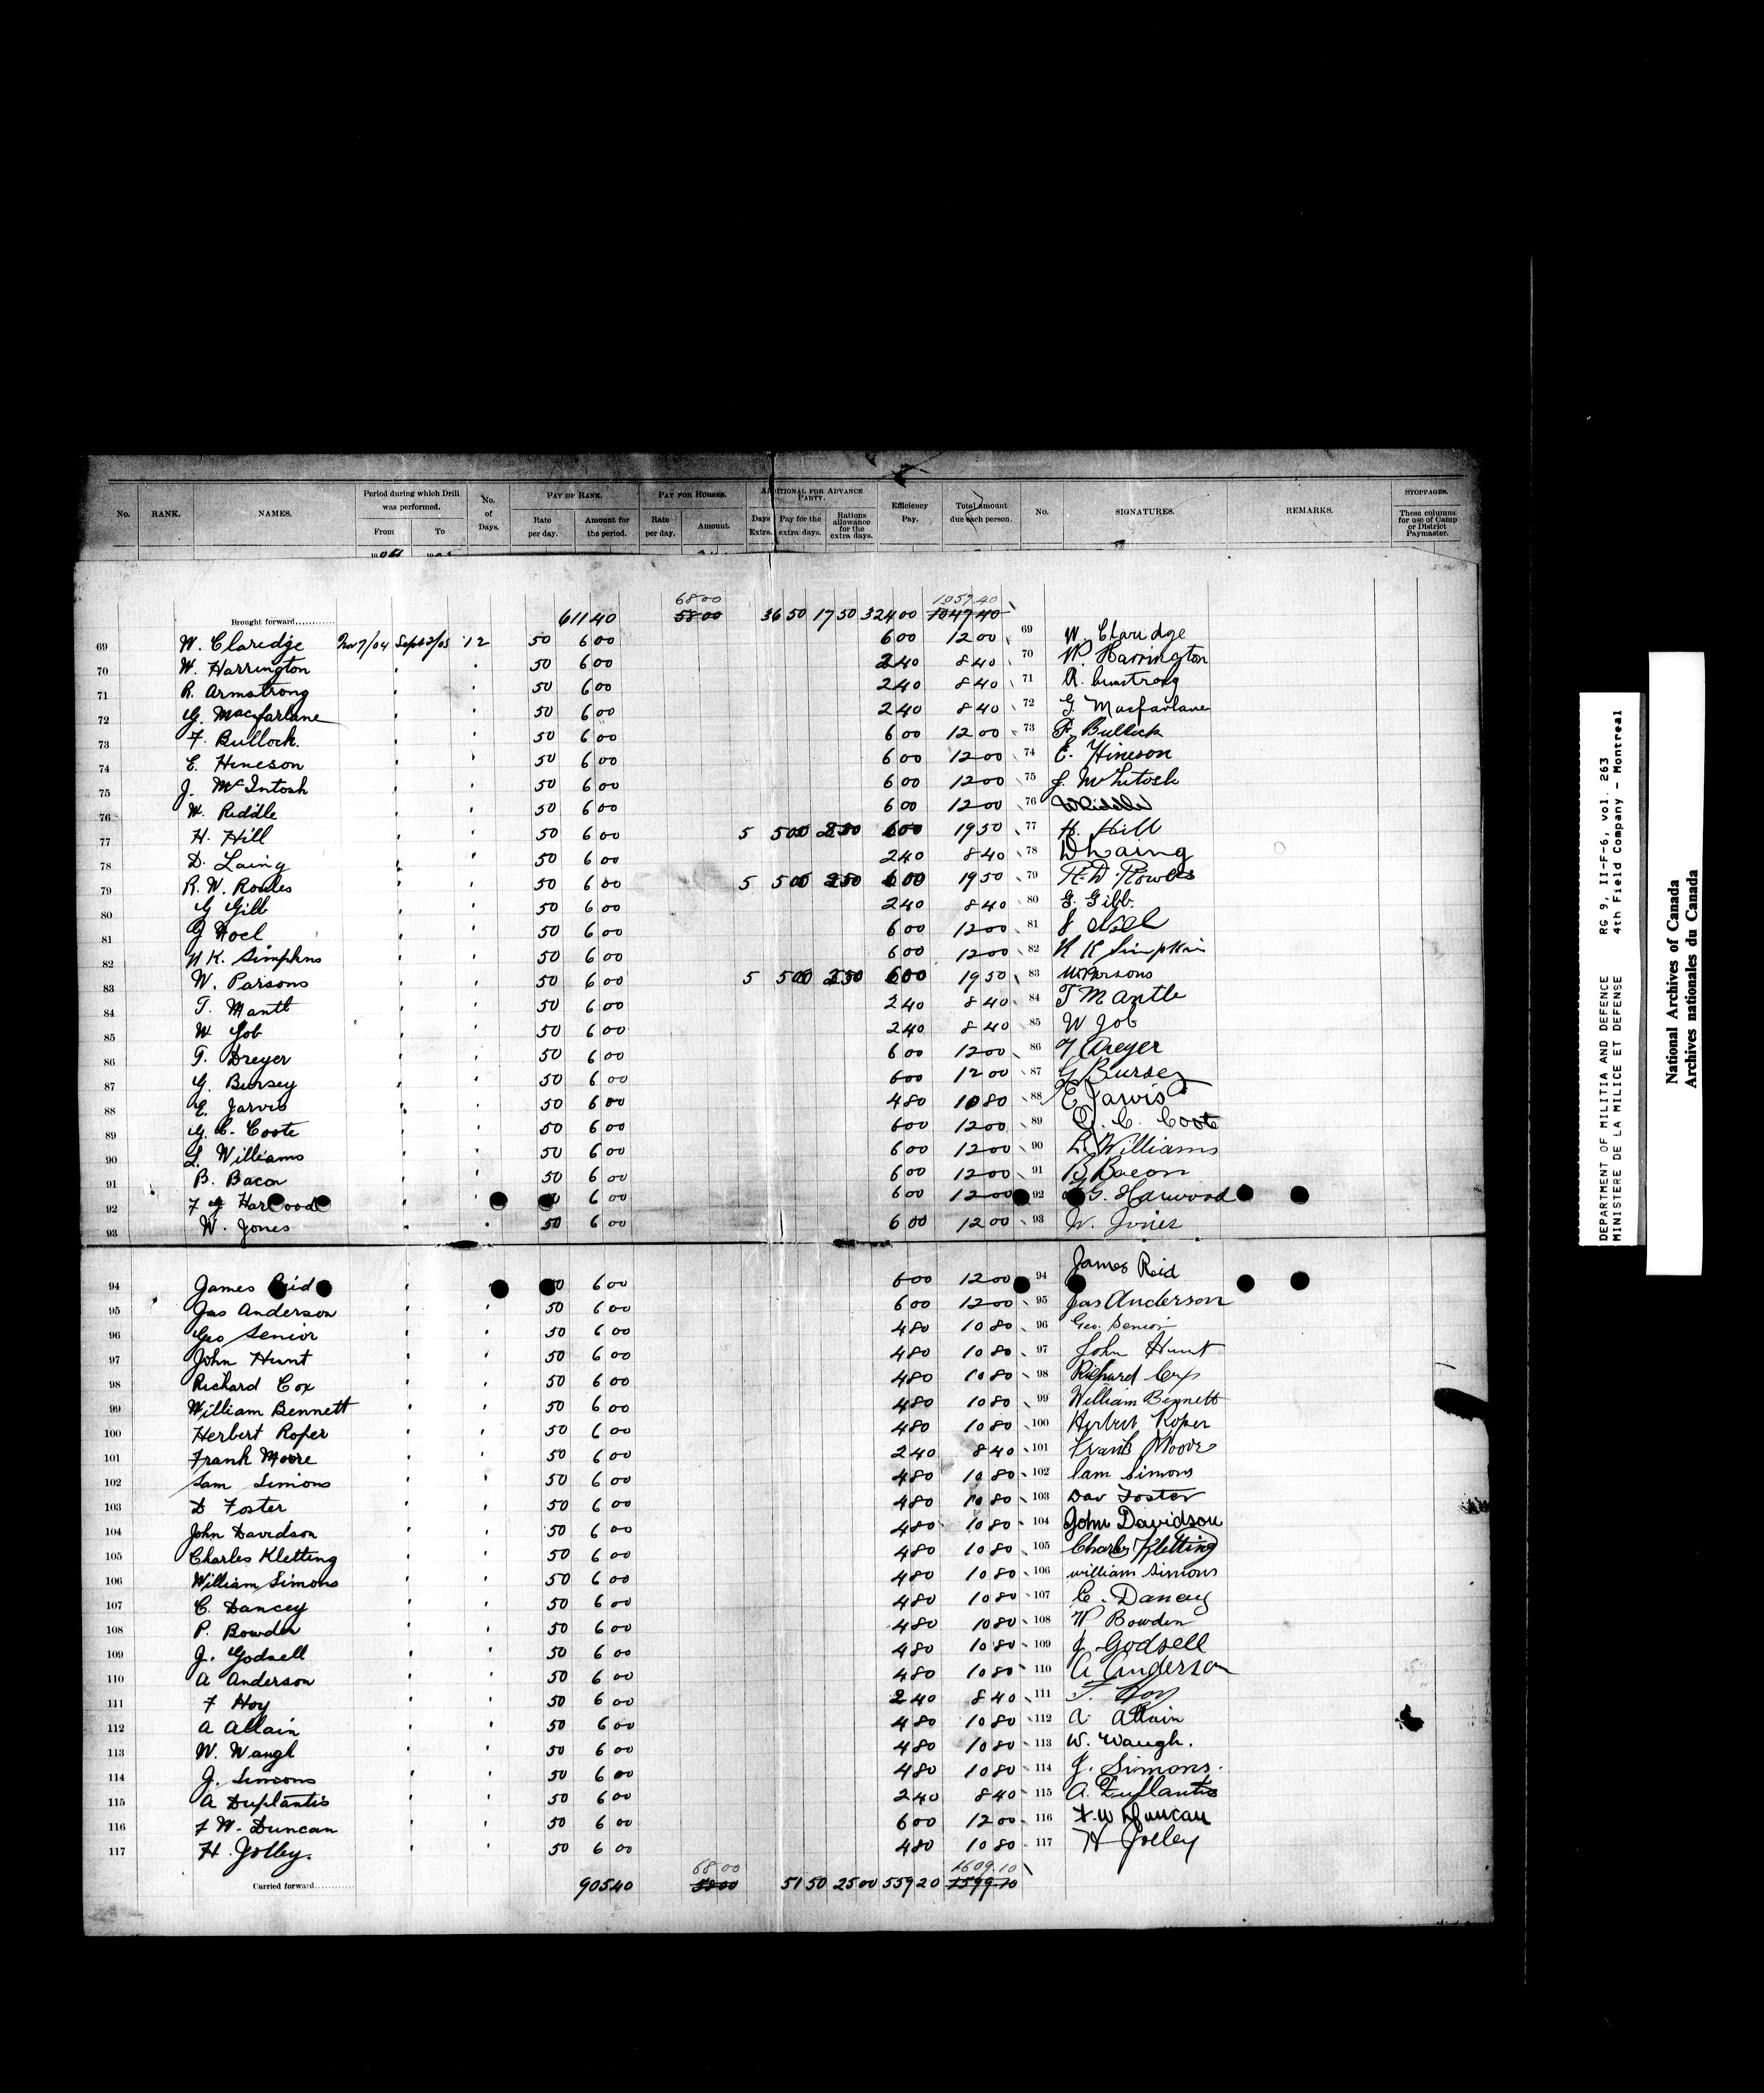 No. RANK. NAMES. Period during which Drill was performed. From To No. of Days. PAY OF RANK. Rate per day. Amount for the period. PAY FOR HORSES. Rate per day. Amount. ADDITIONAL FOR ADVANCE PARTY. Days Extra. Pay for the extra days. Rations allowance for the extra days. Efficiency Pay. Total amount due each person. No. SIGNATURES. REMARKS. STOPPAGES. These columns for use of Camp or District Paymaster.
68 00 1059.40
Brought forward............ 611 40 58 00 36 50 17 50 324 00 1049 40
69 W. Claridge Nov 7/04 Sept 2/05 12 50 6 00 6 00 12 00 69 W. Claridge
70 W. Harrington " " 50 6 00 2 40 8 40 70 W. Harrington
71 R. Armstrong " " 50 6 00 2 40 8 40 71 R. Armstrong
72 G. Macfarlane " " 50 6 00 2 40 8 40 72 G Macfarlane
73 F. Bullock. " " 50 6 00 6 00 12 00 73 F. Bullock
74 E. Hineson " " 50 6 00 6 00 12 00 74 E. Hineson
75 J. McIntosh " " 50 6 00 6 00 12 00 75 J. McIntosh
76 W. Riddle " " 50 6 00 6 00 12 00 76 W Riddle
77 H. Hill " " 50 6 00 5 5 00 2 50 6 00 19 50 77 H. Hill
78 D. Laing " " 50 6 00 2 40 8 40 78 D Laing
79 R. W. Rowles " " 50 6 00 5 5 00 2 50 6 00 19 50 79 R. W. Rowles
80 G Gibb " " 50 6 00 2 40 8 40 80 G. Gibb.
81 G Noel " " 50 6 00 6 00 12 00 81 Noel
82 N K. Simpkins " " 50 6 00 6 00 12 00 82 N K Simpkin
83 W. Parsons " " 50 6 00 5 5 00 2 50 6 00 19 50 83 W Parsons
84 T. Mantl " " 50 6 00 2 40 8 40 84 T Mantle
85 W Job " " 50 6 00 2 40 8 40 85 W Job
86 T. Dreyer " " 50 6 00 6 00 12 00 86 T Dreyer
87 G. Bursey " " 50 6 00 6 00 12 00 87 G Bursey
88 E. Jarvis " " 50 6 00 4 80 10 80 88 E Jarvis
89 G. C. Coote " " 50 6 00 6 00 12 00 89 G. C. Coote
90 L. Williams " " 50 6 00 6 00 12 00 90 L Williams
91 B. Bacon " " 50 6 00 6 00 12 00 91 B Bacon
92 F G Harwood " 6 00 6 00 12 00 92 G. Harwood
93 W. Jones " " 50 6 00 6 00 12 00 93 W. Jones
94 James Reid " 50 6 00 6 00 12 00 94 James Reid
95 Jas Anderson " " 50 6 00 6 00 12 00 95 Jas Anderson
96 Geo Senior " " 50 6 00 4 80 10 80 96 Geo. Senior
97 John Hunt " " 50 6 00 4 80 10 80 97 John Hunt
98 Richard Cox " " 50 6 00 4 80 10 80 98 Richard Cox
99 William Bennett " " 50 6 00 4 80 10 80 99 William Bennett
100 Herbert Roper " " 50 6 00 4 80 10 80 100 Herbert Roper
101 Frank Moore " " 50 6 00 2 40 8 40 101 Frank Moore
102 Sam Simons " " 50 6 00 4 80 10 80 102 Sam Simons
103 D Foster " " 50 6 00 4 80 10 80 103 Dav Foster
104 John Davidson " " 50 6 00 4 80 10 80 104 John Davidson
105 Charles Kletting " " 50 6 00 4 80 10 80 105 Charles Kletting
106 William Simons " " 50 6 00 4 80 10 80 106 william simons
107 C. Dancey " " 50 6 00 4 80 10 80 107 C. Dancey
108 P. Bowden " " 50 6 00 4 80 10 80 108 W Bowden
109 J. Godsell " " 50 6 00 4 80 10 80 109 J Godsell
110 A Anderson " " 50 6 00 4 80 10 80 110 A Anderson
111 F Hoy " " 50 6 00 2 40 8 40 111 F. Hoy
112 A Allain " " 50 6 00 4 80 10 80 112 A Allain
113 W. Waugh " " 50 6 00 4 80 10 80 113 W. Waugh.
114 J. Simons " " 50 6 00 4 80 10 80 114 J. Simons.
115 A Duplantis " " 50 6 00 2 40 8 40 115 A. Duplantis
116 F W. Duncan " " 50 6 00 6 00 12 00 116 F. W Duncan
117 H. Jolley. " " 50 6 00 4 80 10 80 117 H Jolley
68 00 1609.10
Carried forward............ 905 40 58 00 51 50 25 00 559 20 1599 10
DEPARTMENT OF MILITIA AND DEFENCE RG 9, II-F-6, vol. 263
MINISTERE DE LA MILICE ET DEFENSE 4th Field Company - Montreal
National Archives of Canada
Archives nationales du Canada